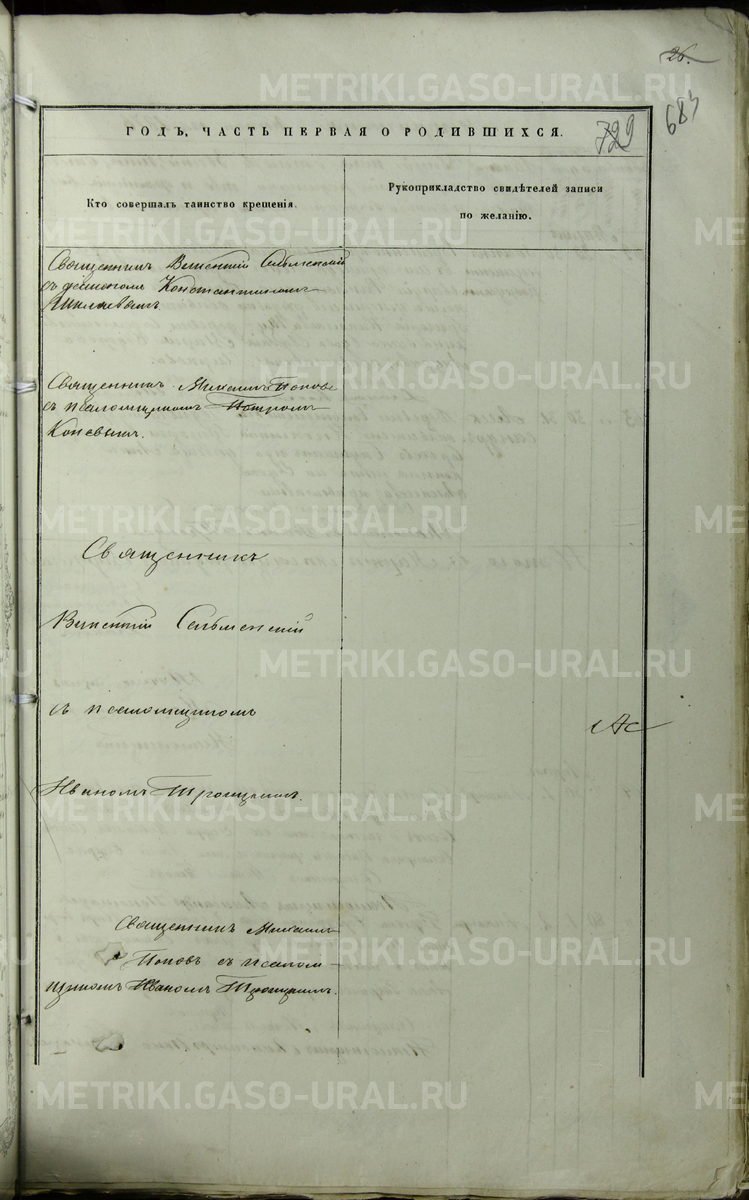 26.
683
ГОДЪ, ЧАСТЬ ПЕРВАЯ О РОДИВШИХСЯ.
729
Кто совершалъ таинство крещенія.
Рукоприкладство свидѣтелей записи
по желанію.
Священникъ Викентій Сельменскій
съ діакономъ Константиномъ
Священникъ Михаилъ Поповъ
съ псаломщикомъ Петромъ
Священникъ
Викентій Сельменскій
съ псаломщикомъ
Иваномъ Троицкимъ.
Священникъ Михаилъ
Поповъ съ псалом-
щикомъ Иваномъ Троицкимъ.
METRIKI.GASO-URAL.RU